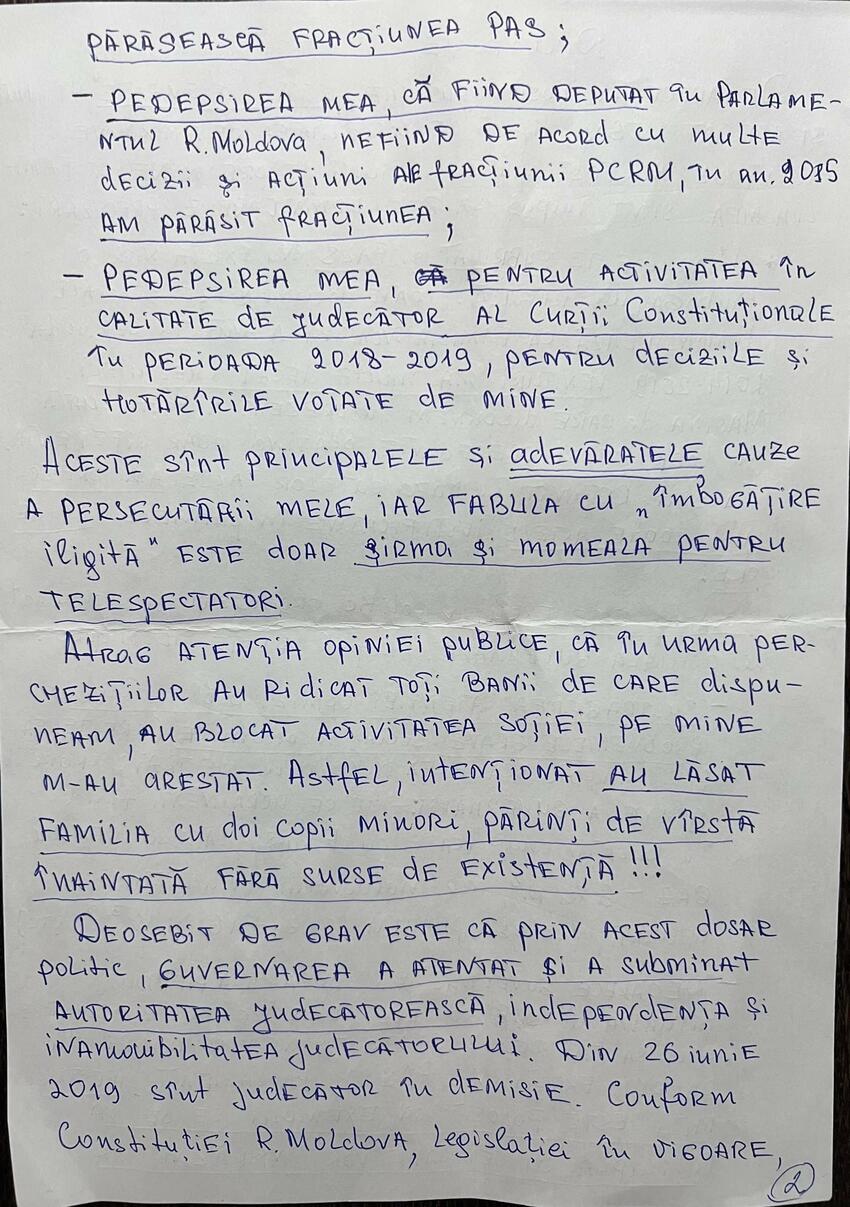 PĂRĂSEASCĂ FRACȚIUNEA PAS;
- PEDEPSIREA MEA, CĂ FIIND DEPUTAT în PARLAME-
NTUL R. Moldova, NEFIIND DE ACORD CU multe
decizii și ACȚIUNI ALE fRACȚIUNII PCRM, în an. 2015
AM PĂRĂSIT fRACȚIUNEA;
- PEDEPSIREA MEA, PENTRU ACTIVITATEA în
CALITATE de judecător AL Curții Constituționale
în PERIOADA 2018-2019, PENTRU deciziile și
HOTĂRÎRILE VOTATE de MINE.
ACESTE sînt PRINCIPALELE și adevăratele CAUZE
A PERSECUTĂRII MELE, IAR FABULA CU „ÎMBOGĂȚIRE
iligită" ESTE doar șirma și MOMEALA PENTRU
TELESPECTATORI.
Atrag ATENȚIA OPINIEI publice, CĂ în urma PER-
CHEZIȚIILOR AU Ridicat TOȚI BANII de CARE dispu-
NEAM, AU BLOCAT ACTIVITATEA SOȚIEI, PE MINE
M-AU ARESTAT. Astfel, intENȚIONAT AU LĂSAT
FAMILIA CU doi copii MINORI, PĂRINȚI de VÎRSTĂ
ÎNAINTATĂ FĂRĂ SURSE de EXISTENȚĂ!!!
DEOSEBIT DE GRAV ESTE CĂ PRIN ACEST dOSAR
politic, GUVERNAREA A ATENTAT ȘI A subminat
AUTORITATEA judecătorească, independența și
inamovibilitatea judecătorului. Din 26 iunie
2019 sînt judecător în demisie. Conform
Constituției R. Moldova, legislației în vigoare,
2